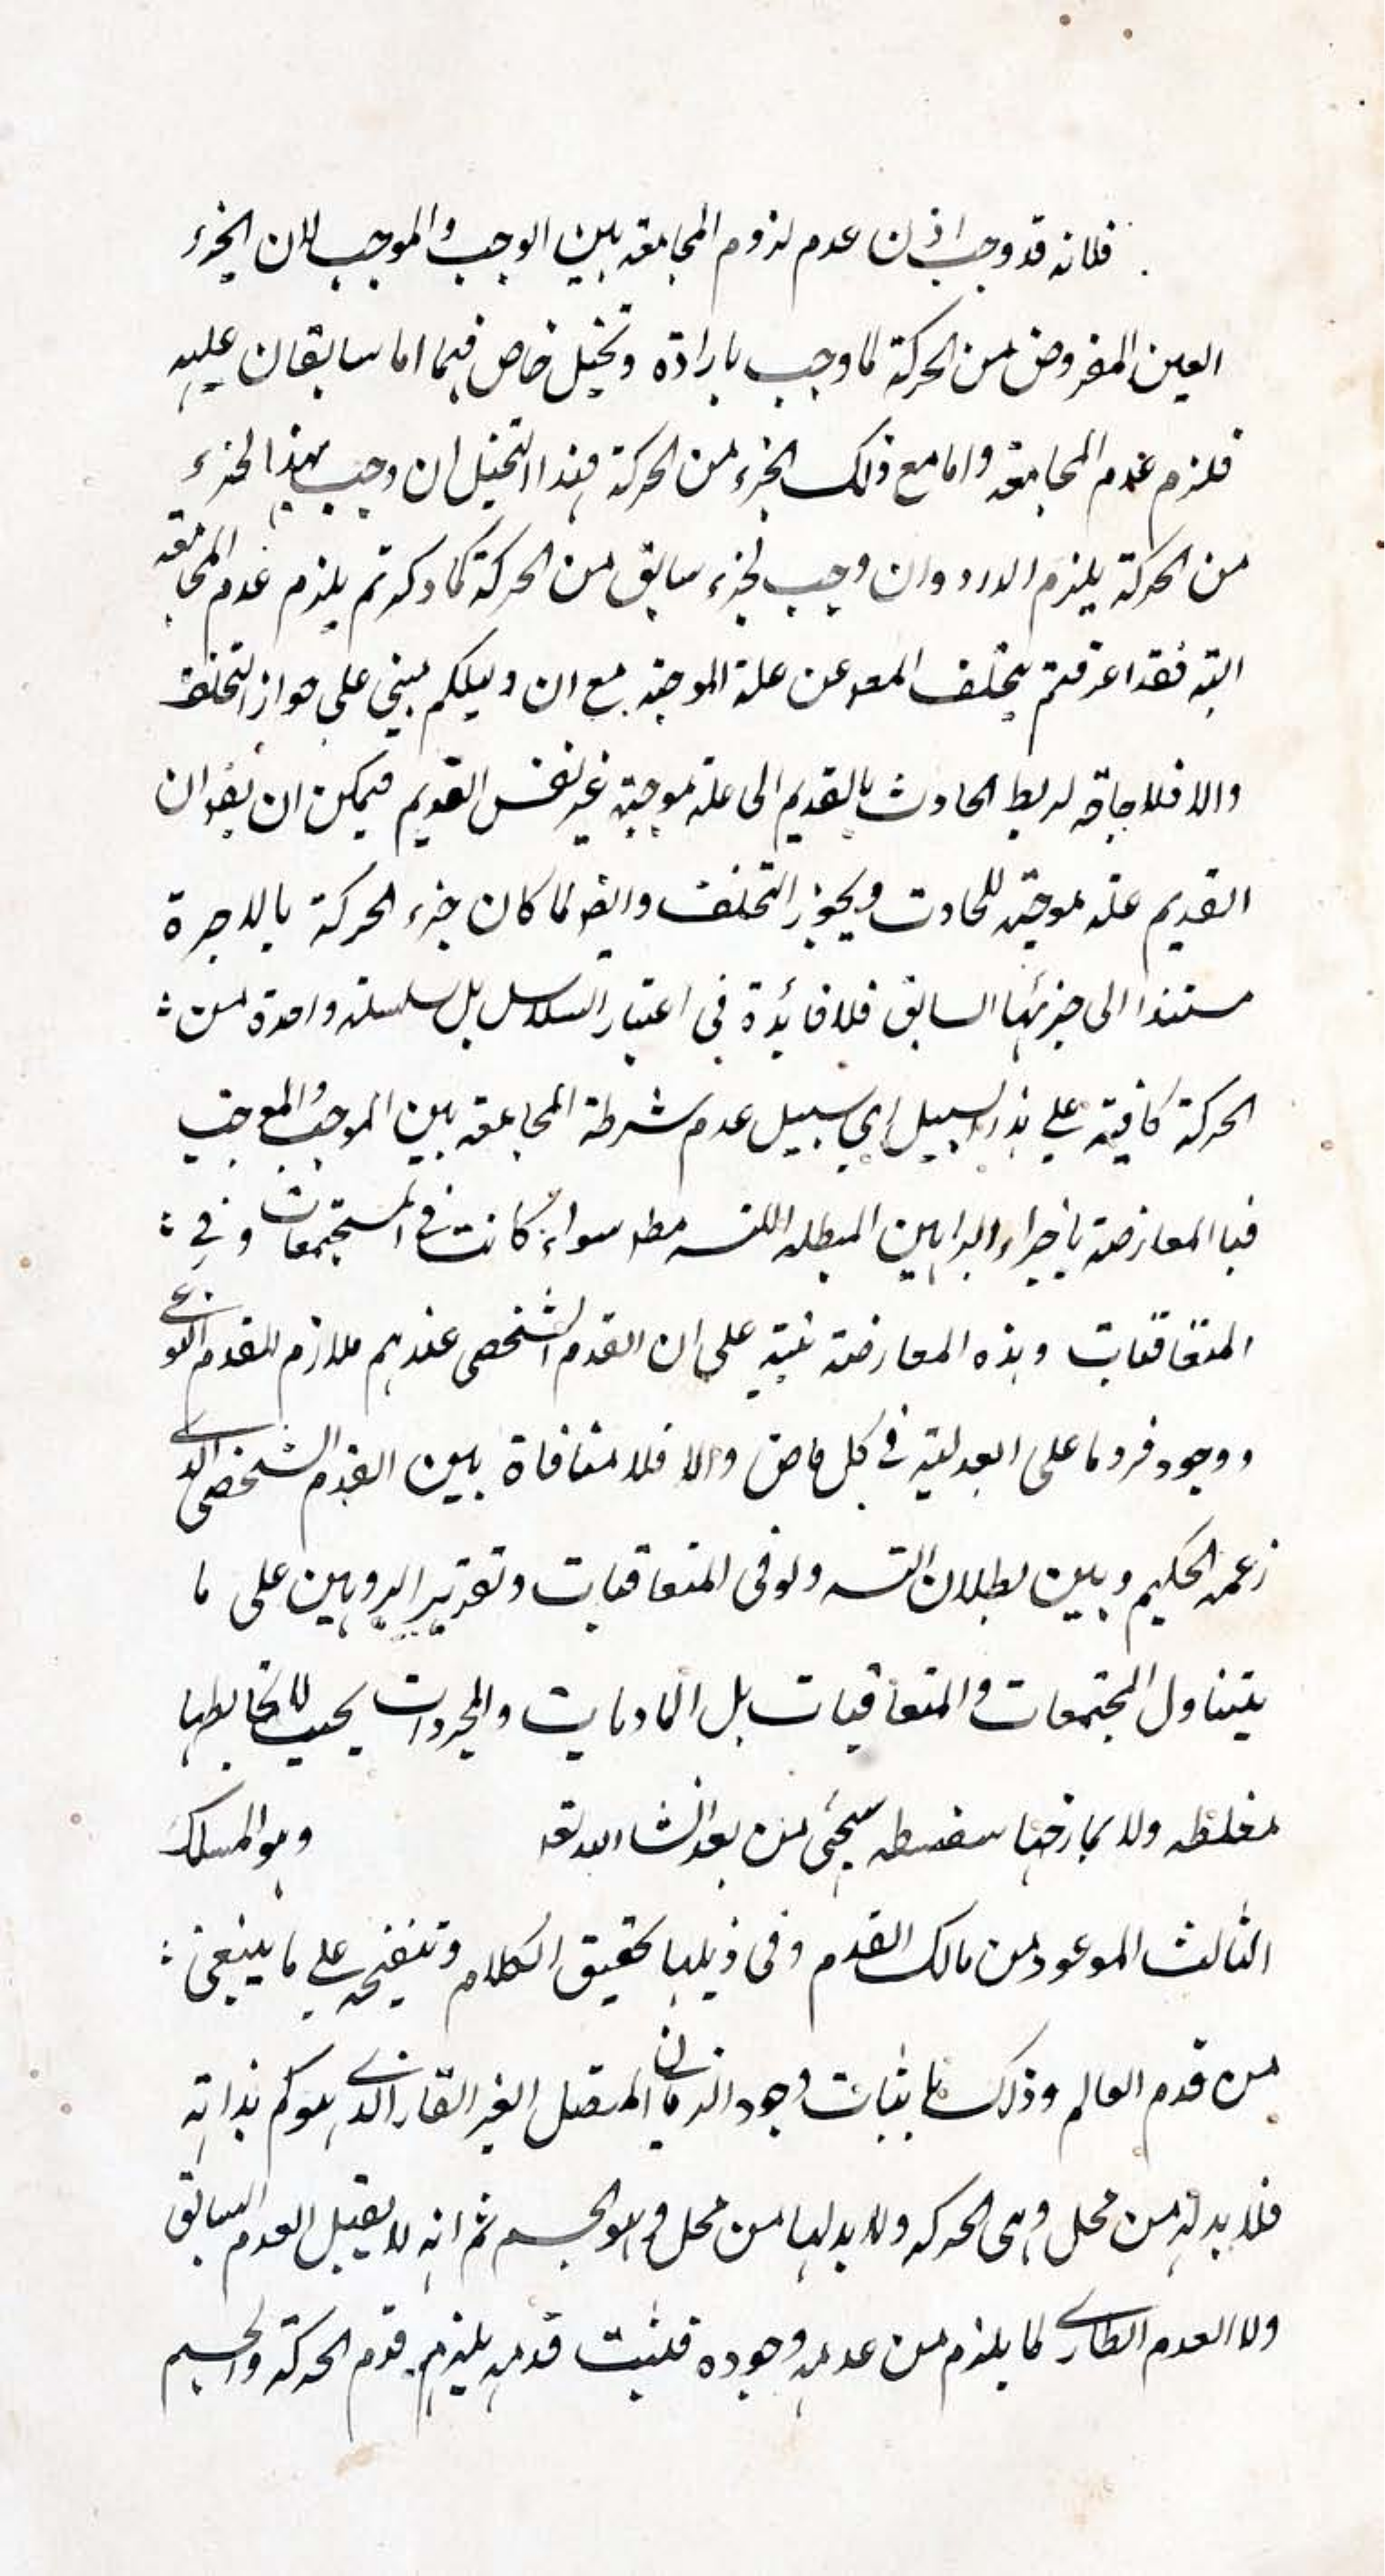 فلانه قد وجب اذن عدم لزوم المجامعة بين الوجب والموجب لان الجزء
العين المفروض من الحركة لما وجب بارادة وتخيل خاص فهما اما سابقان عليه
فلزم عدم المجامعة واما مع ذلك الجزء من الحركة فهذا التخيل ان وجب بهذا الجزء
من الحركة يلزم الدور وان وجب لجزء سابق من الحركة كما ذكرتم يلزم عدم المجامعة
البته فقد اعترفتم بتخلف المعه عن علة الموجبة مع ان دليلكم مبني على جواز التخلف
والا فلا حاجة لربط الحادث بالقديم الى علة موجبة غير نفس القديم فيمكن ان يقه ان
القديم علة موجبة للحادث ويجوز التخلف وايضا لما كان جزء الحركة بالاجرة
مستندا الى جزئها السابق فلا فائدة في اعتبار السلاسل بل سلسلة واحدة من
الحركة كافية على هذا السبيل اي سبيل عدم شرطة المجامعة بين الموجب والموجب
المعارضة باجراء البراهين المبطله للتسه مطه سواء كانت في المستجمعات وفي
المتعاقبات وهذه المعارضة مبنية على ان القدم الشخصي عندهم ملازم للقدم النوعي
ووجود فرد ما على البدلية في كل ماض والا فلا منافاة بين القدم الشخصي الذي
زعمه الحكيم وبين بطلان التسه ولو في المتعاقبات وتقرير البروهين على ما
يتناول المجتمعات والمتعاقبات بل الماديات والمجردات بحيث لا يخالطها
مغلطه ولا يمازجها سفسطه سيجئ من بعد انشا الله تعه وهو المسلك
الثالث الموعود من مالك القدم وفي ذيلها تحقيق الكلام وتنقيحه على ما ينبغي
من قدم العالم وذلك باثبات وجود الزمان المتصل الغير القار الذي هو كم بذاته
فلا بد له من محل وهي الحركه ولا بد لها من محل وهو الجسم ثم انه لا يقبل العدم السابق
ولا العدم الطاري لما يلزم من عدمه وجوده فلثبت قدمه يلزم قدم الحركة والجسم